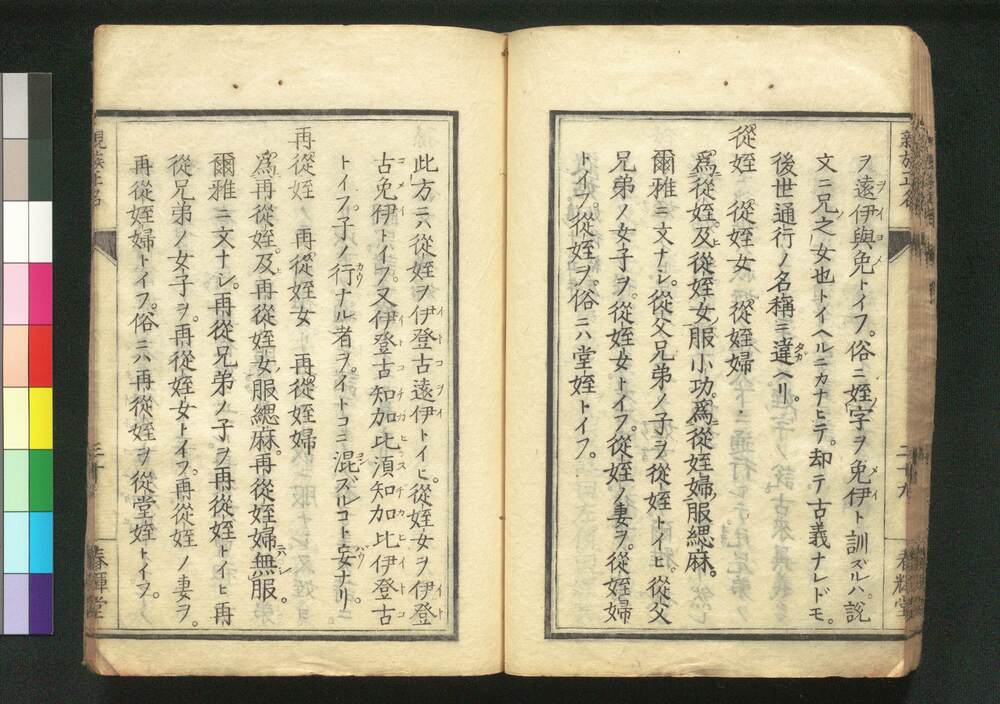 ヲ遠伊與免トイフ。俗ニ姪ノ字ヲ免伊ト訓ズルハ。説
文ニ兄之女也トイヘルニカナヒテ。却テ古義ナレドモ。
後世通行ノ名稱ニ違ヘリ。
從姪 從姪女 從姪婦
爲從姪。及從姪女。服小功。爲從姪婦。服緦麻。
爾雅ニ文ナシ。從父兄弟ノ子ヲ從姪トイヒ。從父
兄弟ノ女子ヲ。從姪女トイフ。從姪ノ妻ヲ。從姪婦
トイフ。從姪ヲ。俗ニハ堂姪トイフ。
三十九
春輝堂
此方ニハ從姪ヲ伊登古遠伊トイヒ。從姪女ヲ伊登
古免伊トイフ。又伊登古知加比湏知加比伊登古
トイフ。子ノ行ナル者ヲ。イトコニ混ズルコト妄ナリ。
再從姪 再從姪女 再從姪婦
爲再從姪。及再從姪女服緦麻。再從姪婦無服。
爾雅ニ文ナシ。再從兄弟ノ子ヲ再從姪トイヒ再
從兄弟ノ女子ヲ。再從姪女トイフ。再從姪ノ妻ヲ。
再從姪婦トイフ。俗ニハ再從姪ヲ從堂姪トイフ。
親族正名
春輝堂